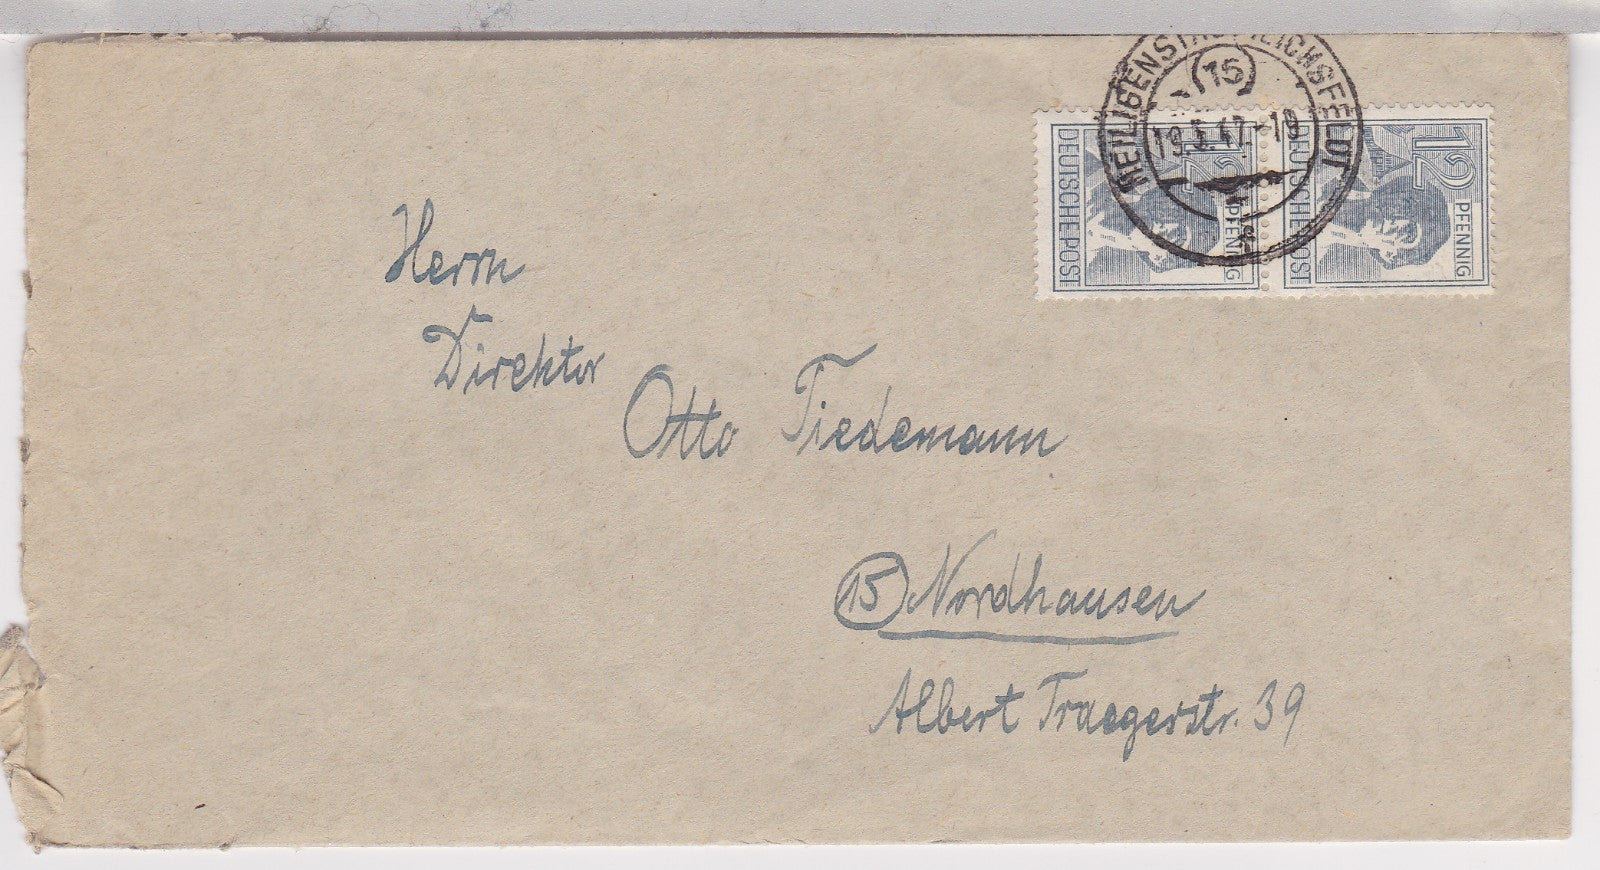 HEILIGENSTADT (EICHSFELD) 1
15
19.3.47.-18
12 PFENNIG
DEUTSCHE POST
12 PFENNIG
DEUTSCHE POST
Herrn
Direktor
Otto Tiedemann
15 Nordhausen
Albert Traegerstr. 39